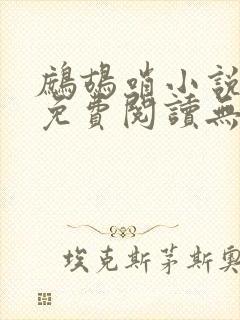 鷓鴣哨小說
免費閱讀無
埃克斯茅斯奧